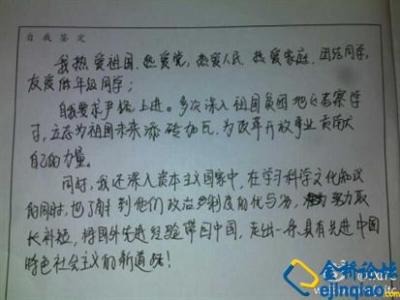 自我鉴定
我热爱祖国,热爱党,热爱人民 热爱家庭,团结同学,
友爱低年级同学;
自我要求严格上进。多次深入祖国贫困地区考察学
习,立志为祖国未来添砖加瓦,为改革开放事业贡献
自己的力量。
同时,我还深入资本主义国家中,在学习科学文化知识
的同时,也了解到他们政治制度的优与劣,努力取
长补短,将国外先进经验带回中国,走出一条具有先进中国
特色社会主义的新道路!
金桥论坛
ejinqiao.com